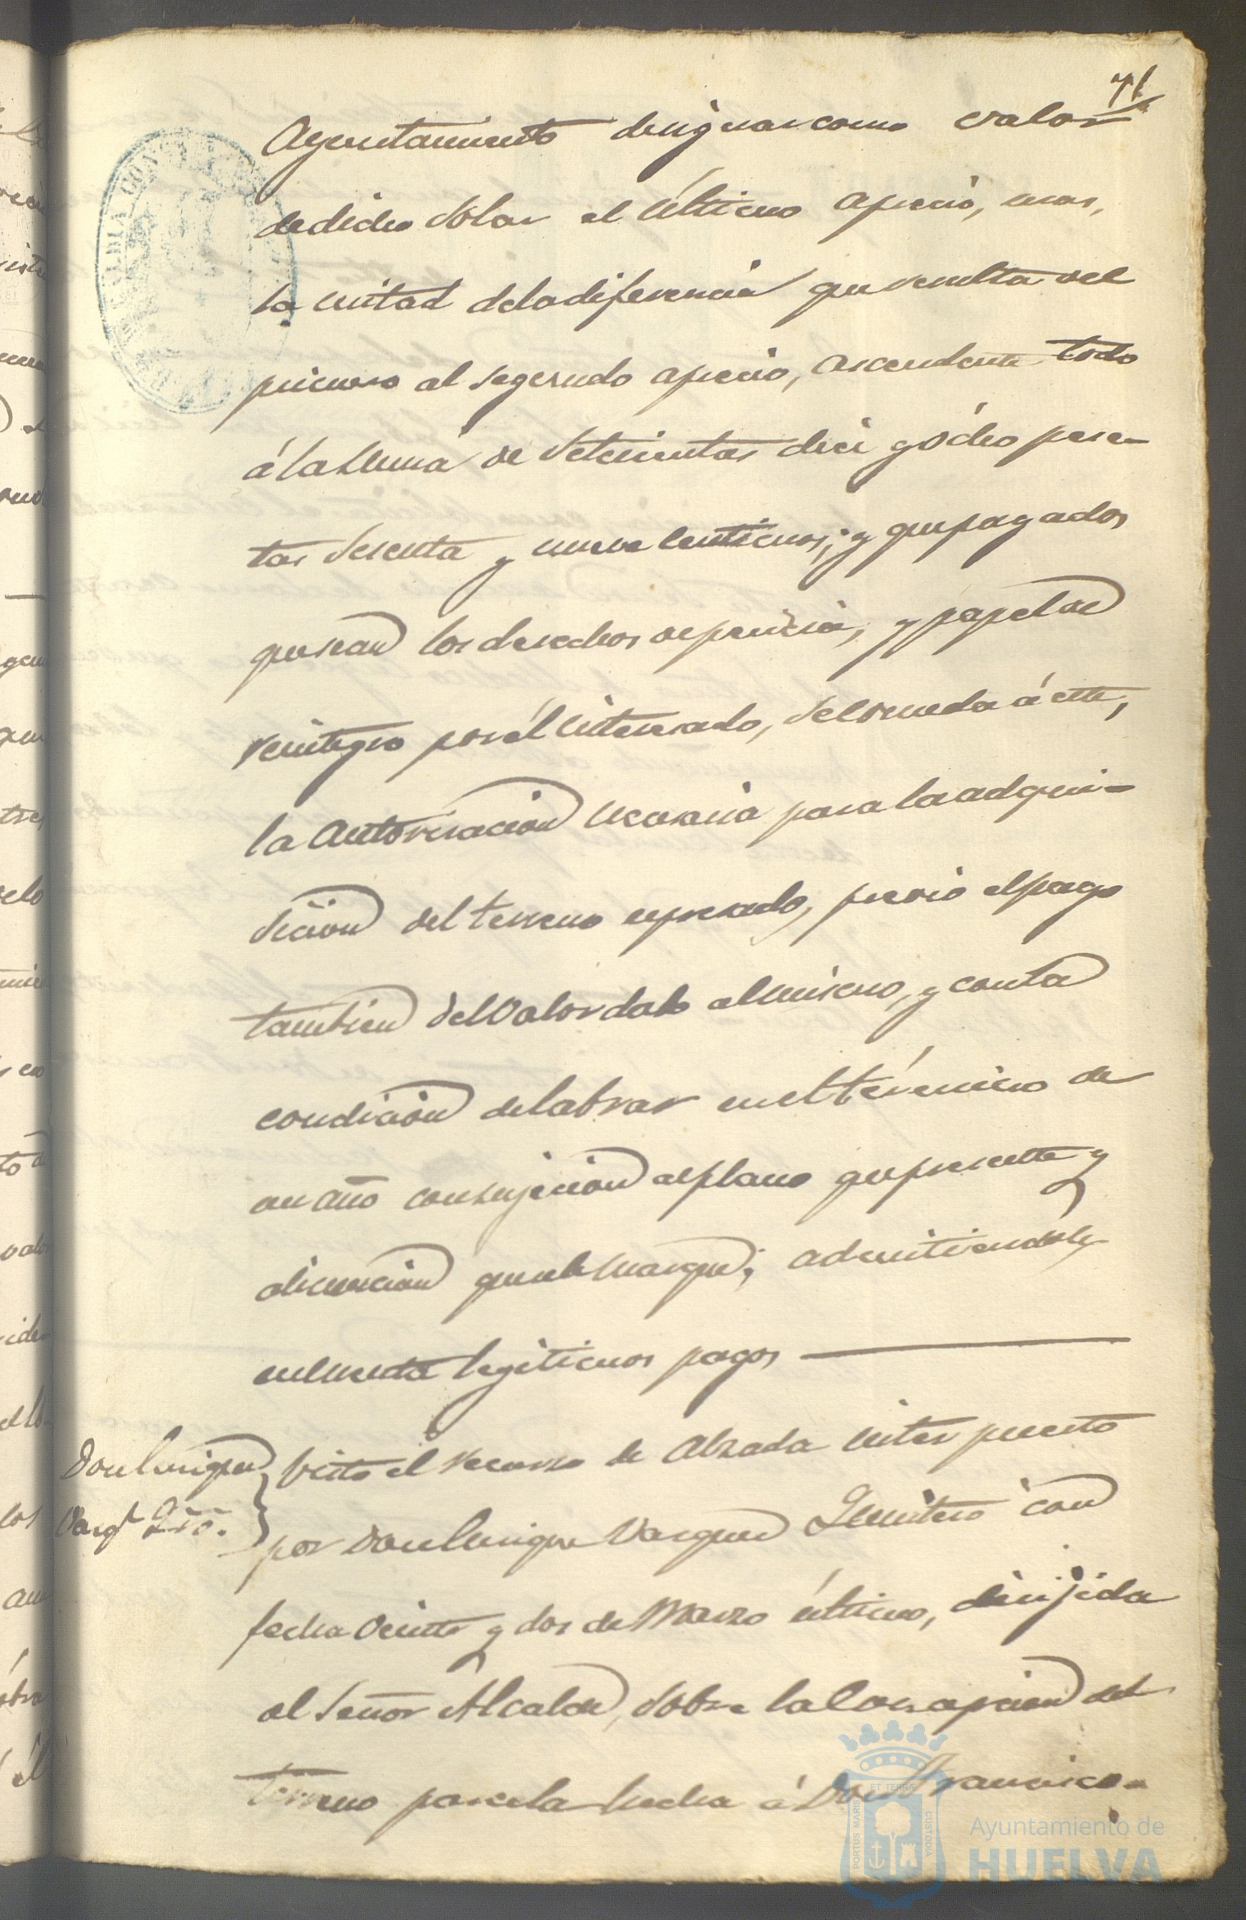 71
Ayuntamiento designar como valor
de dicho Solar el último aprecio, mas,
la mitad dela diferencia que resulta del
primero al segundo aprecio, ascendente todo
á la suma de Setecientas diez y ócho pese-
tas Sesenta y nueve centimos; y que pagados
que sean los derechos de pericia, y papel de
reintegro por él interesado, se conceda á este,
la autorizacion necesaria para la adqui-
sicion del terreno espresado, previo el pago
tambien del valor dado al mismo, y con la
condicion de labrar en el término de
un año con sujecion al plano que presente y
alineacion que se le marque; admitiendole
en cuenta legitimos pagos
Don Enrique
Vazqz Qro.
Visto el recurso de Alzada interpuesto
por Don Enrique Vazquez Quintero con
fecha veinte y dos de Marzo último, dirijida
al Señor Alcalde, sobre la concepcion del
terreno parcela hecha á Don Francisco
PORTUS MARIS ET TERRE CUSTODIA
Ayuntamiento de
HUELVA